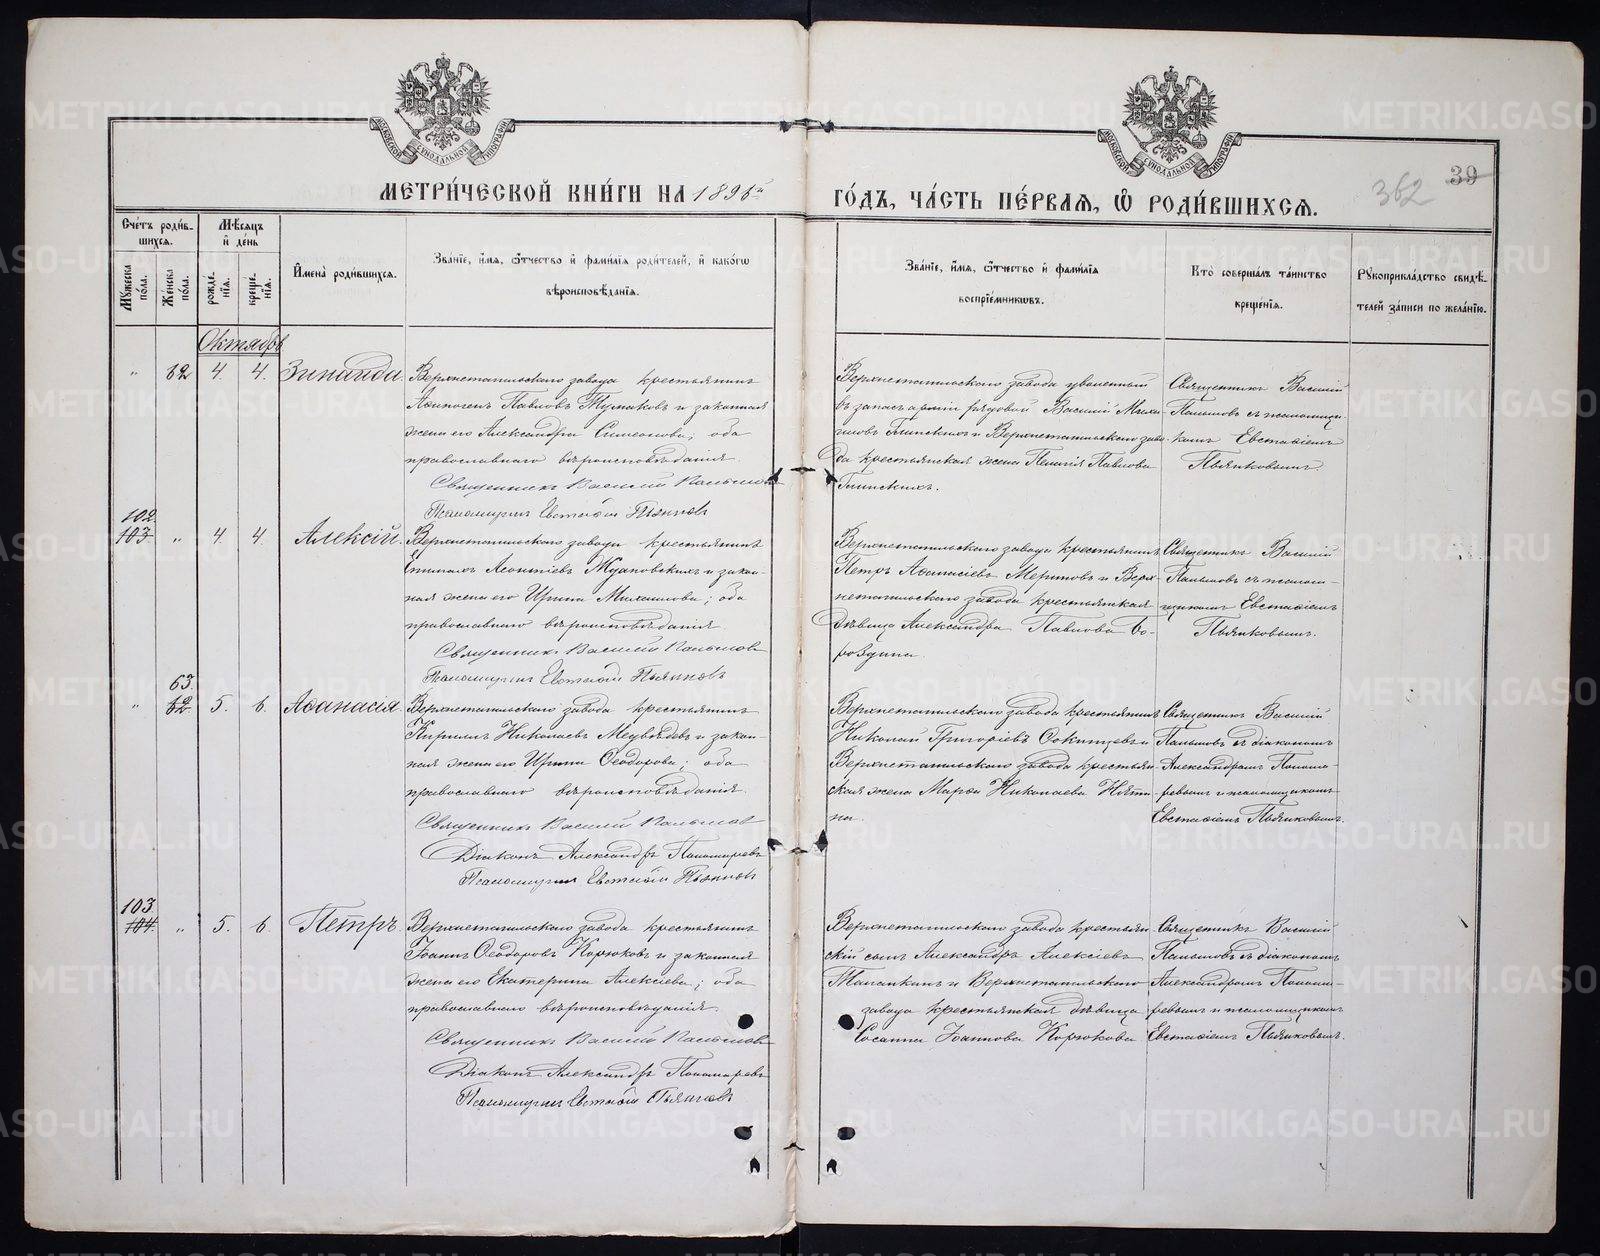 МОСКОВСКОЙ СУНОДАЛЬНОЙ ТИПОГРАФІИ
МОСКОВСКОЙ СУНОДАЛЬНОЙ ТИПОГРАФІИ
МЕТРИ́ЧЕСКОЙ КНИ́ГИ НА 1896й
ГО́ДЪ, ЧА́СТЬ ПЕ́РВАѦ, Ѽ РОДИ́ВШИХСѦ.
39
362
Сче́тъ роди́в-
шихсѧ.
Мѣ́сѧцъ
и҆ де́нь
Му́жеска
по́ла.
Же́нска
по́ла.
рожде́-
нїѧ.
креще́-
нїѧ.
И҆мена̀ роди́вшихсѧ.
Зва́нїе, и҆́мѧ, ѻ҆́тчество и҆ фами́лїѧ роди́телей, и҆ како́гѡ
вѣроисповѣ́данїѧ.
Зва́нїе, и҆́мѧ, ѻ҆́тчество и҆ фами́лїѧ
воспрїе́мникѡвъ.
Кто̀ соверша́лъ та́инство
креще́нїѧ.
Рꙋкоприкла́дство свидѣ́-
телей за́писи по жела́нїю.
Октябрь
" 62 4. 4. Зинаида.
Верхнетагильскаго завода крестьянинъ
Аѳиногенъ Павловъ Тумаковъ и законная
жена его Александра Симеонова; оба
православнаго вѣроисповѣданія.
Священникъ Василій Копыловъ
Псаломщикъ Евстаѳій Пьянковъ
Верхнетагильскаго завода уволенный
въ запасъ арміи рядовой Василій Миха-
иловъ Глинскихъ и Верхнетагильскаго заво-
да крестьянская жена Пелагія Павлова
Глинскихъ.
Священникъ Василій
Копыловъ съ псаломщи-
комъ Евстаѳіемъ
Пьянковымъ.
102.
103 " 4 4. Алексій.
Верхнетагильскаго завода крестьянинъ
Леонтіевъ и закон-
ная жена его Ирина Михаилова; оба
православнаго вѣроисповѣданія.
Священникъ Василій Копыловъ
Псаломщикъ Евстаѳій Пьянковъ
Верхнетагильскаго завода крестьянинъ
Петръ Аѳанасіевъ и Верх-
нетагильскаго завода крестьянская
дѣвица Александра Павлова Бо-
роздина.
Священникъ Василій
Копыловъ съ псалом-
щикомъ Евстаѳіемъ
Пьянковымъ.
63.
" 62 5. 6. Аѳанасія.
Верхнетагильскаго завода крестьянинъ
Кириллъ Николаевъ Медвѣдевъ и закон-
ная жена его Ирина Ѳеодорова; оба
православнаго вѣроисповѣданія.
Священникъ Василій Копыловъ
Діаконъ Александръ Пономаревъ
Псаломщикъ Евстаѳій Пьянковъ
Верхнетагильскаго завода крестьянинъ
Николай Григоріевъ и
Верхнетагильскаго завода крестьян-
ская жена Марѳа Николаева
на.
Священникъ Василій
Копыловъ съ діакономъ
Александромъ Понома-
ревымъ и псаломщикомъ
Евстаѳіемъ Пьянковымъ.
103.
104. " 5. 6. Петръ.
Верхнетагильскаго завода крестьянинъ
Іоаннъ Ѳеодоровъ Корюковъ и законная
жена его Екатерина Алексіева; оба
православнаго вѣроисповѣданія.
Священникъ Василій Копыловъ
Діаконъ Александръ Пономаревъ
Псаломщикъ Евстаѳій Пьянковъ
Верхнетагильскаго завода крестьян-
скій сынъ Александръ Алексіевъ
и Верхнетагильскаго
завода крестьянская дѣвица
Сосанна Іоаннова Корюкова
Священникъ Василій
Копыловъ съ діакономъ
Александромъ Понома-
ревымъ и псаломщикомъ
Евстаѳіемъ Пьянковымъ.
METRIKI.GASO-URAL.RU